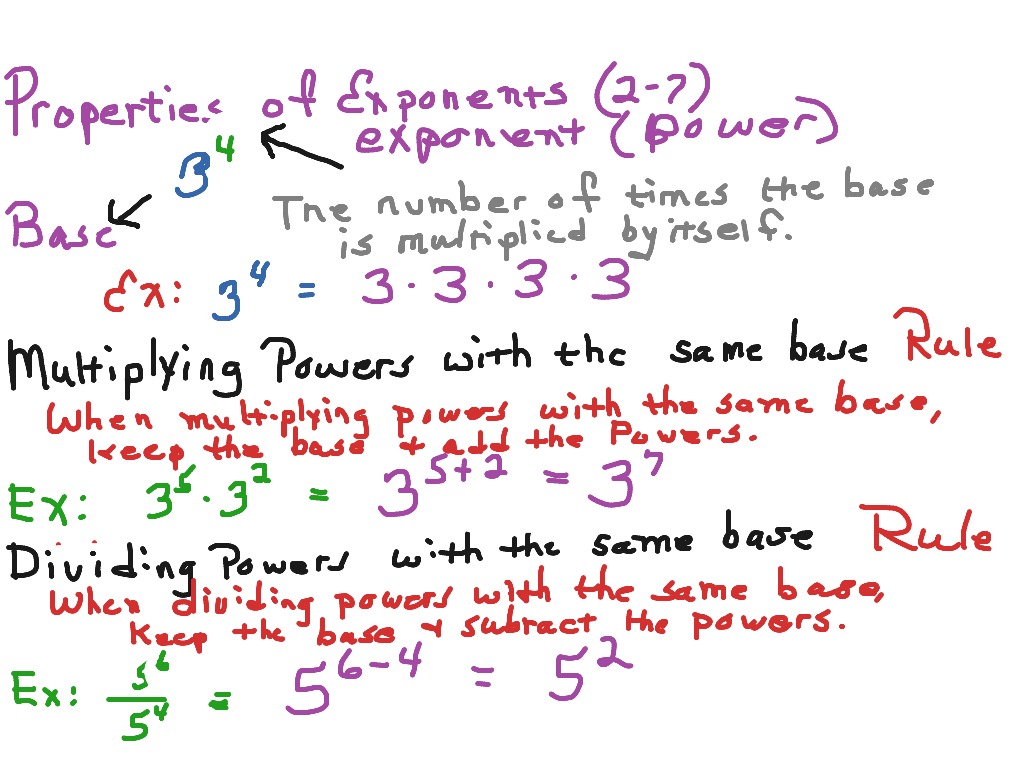 Properties of Exponents (2-7)
exponent (power)
3⁴
Base
The number of times the base
is multiplied by itself.
Ex: 3⁴ = 3 · 3 · 3 · 3
Multiplying Powers with the same base Rule
When multiplying powers with the same base,
keep the base + add the Powers.
Ex: 3⁵ · 3² = 3⁵⁺² = 3⁷
Dividing Powers with the same base Rule
When dividing powers with the same base,
Keep the base + subtract the powers.
Ex: 5⁶/5⁴ = 5⁶⁻⁴ = 5²